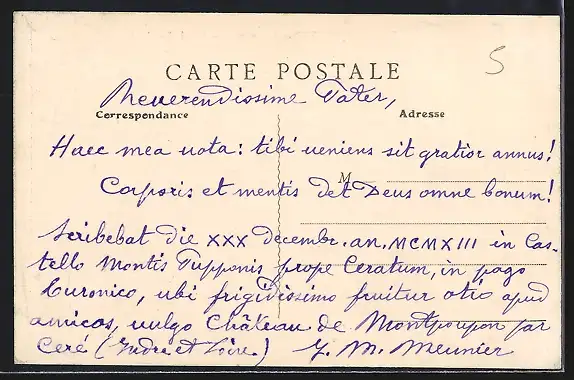 5
CARTE POSTALE
Reverendissime Pater,
Correspondance
Adresse
Haec mea vota: tibi veniens sit gratior annus!
M
Corporis et mentis det Deus omne bonum!
Scribebat die XXX decembr. an. MCMXIII in Cas-
tello Montis Pupponis prope Ceratum, in pago
Turonico, ubi frigidissimo fruitur otio apud
amicos, vulgo Château de Montpoupon par
Ceré (Indre et Loire.) J. M. Meunier